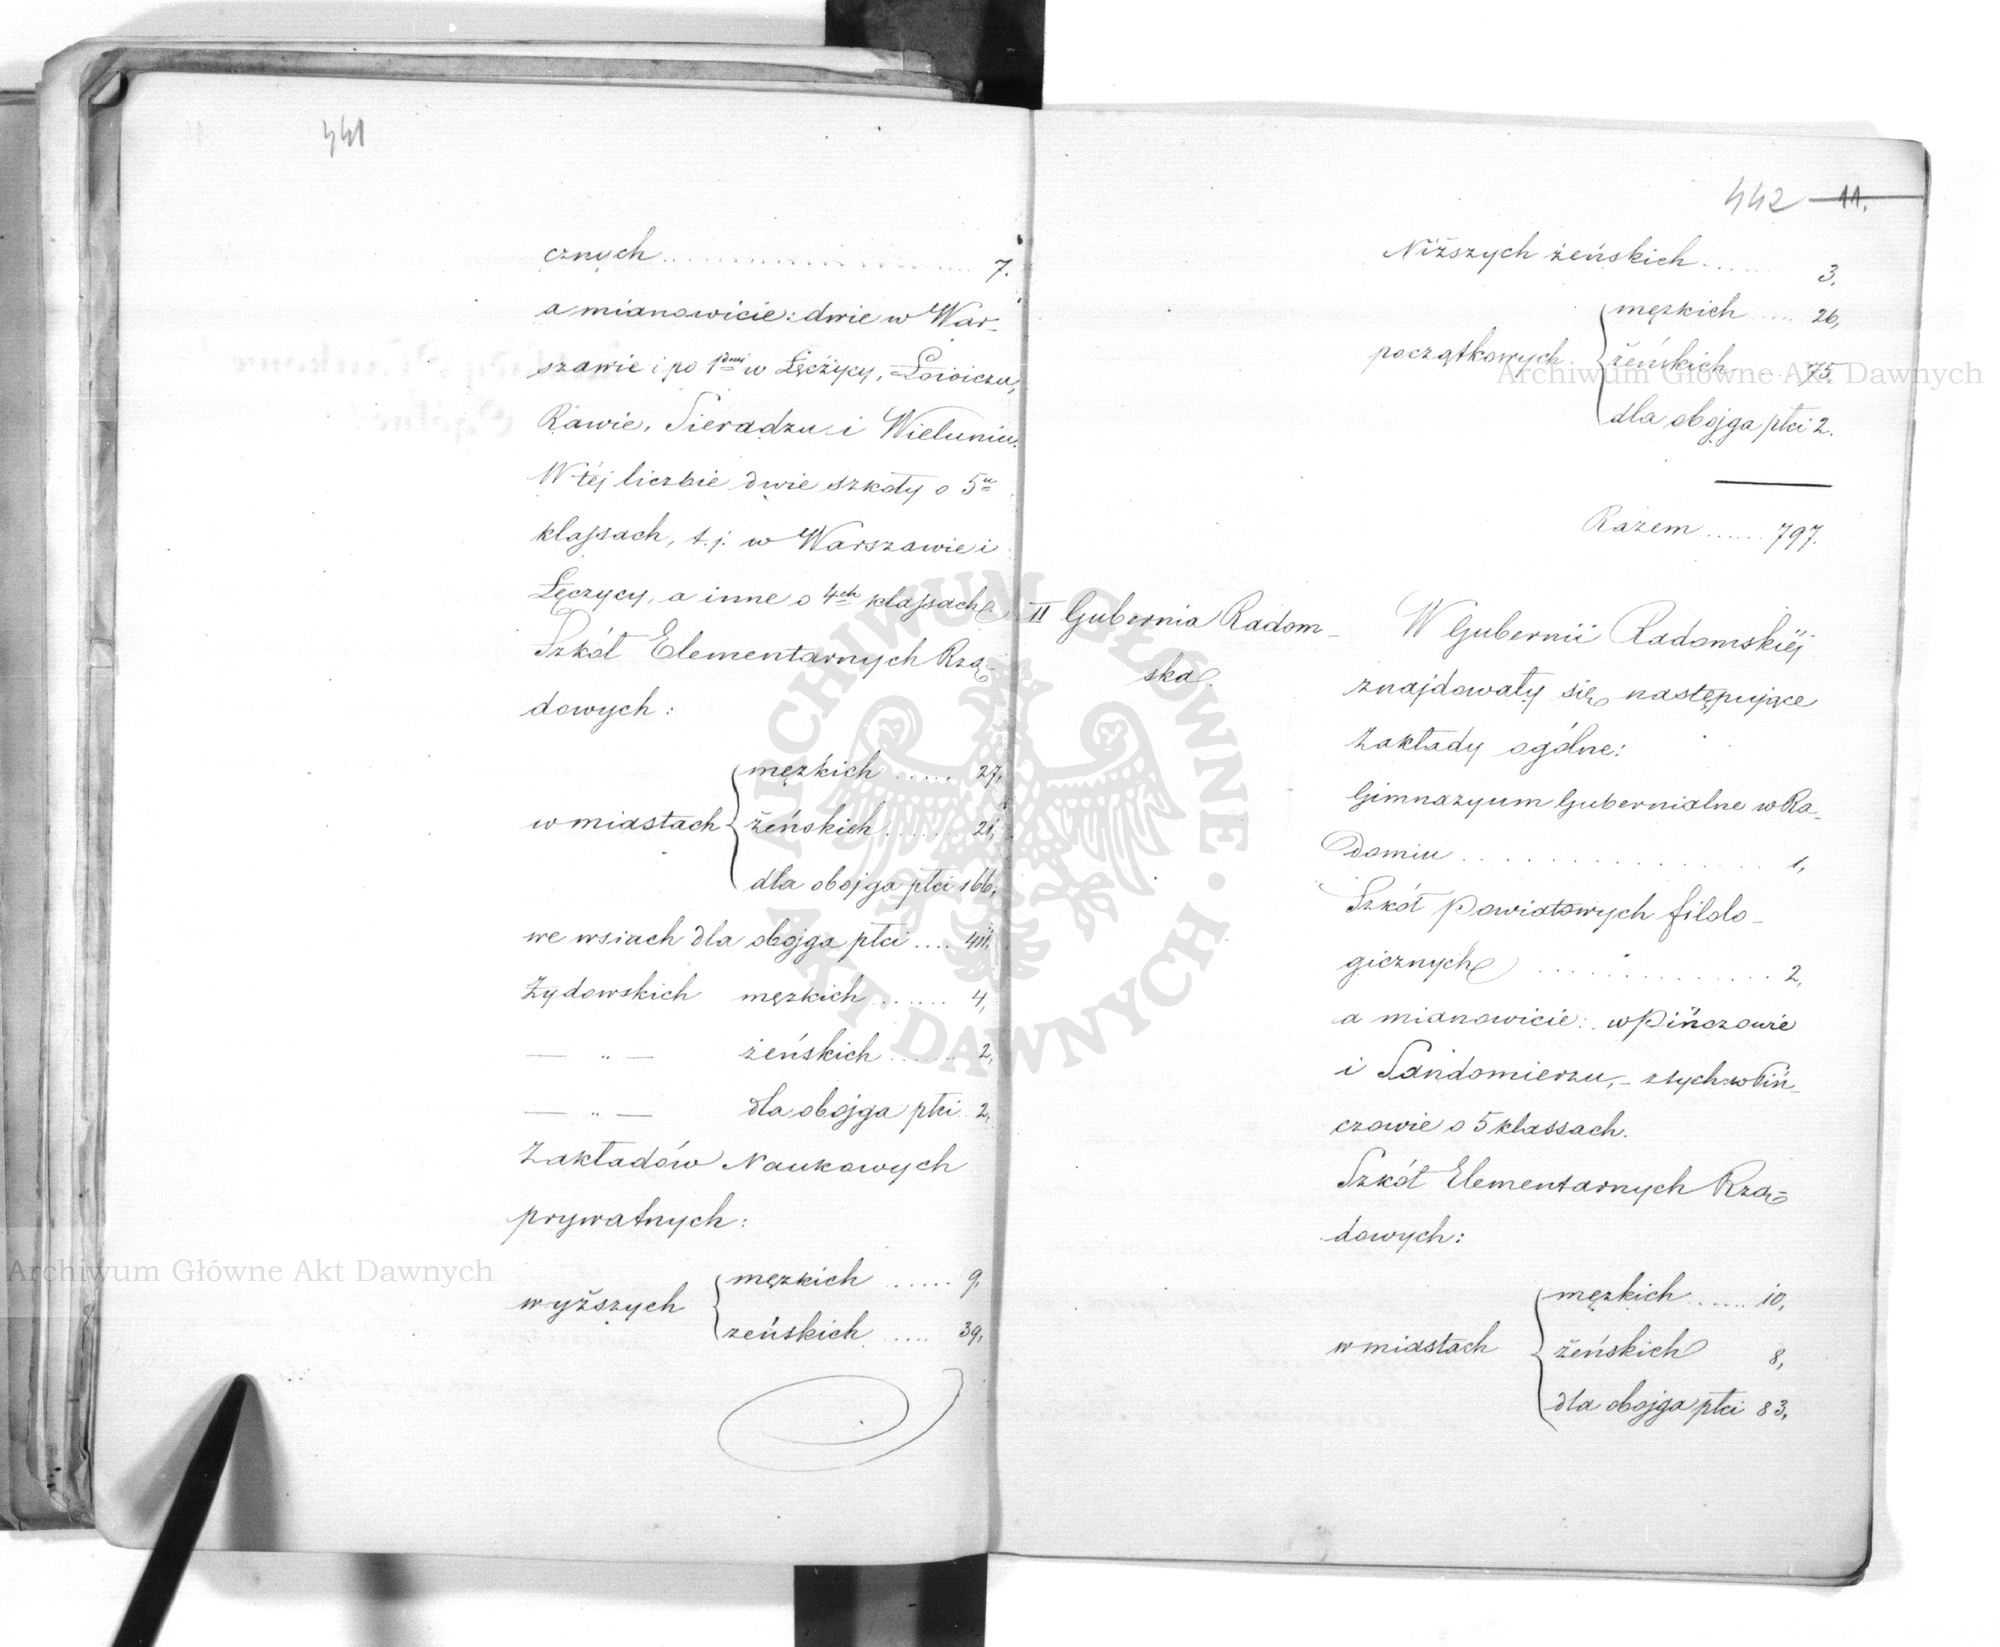 441
cznych ........................ 7.
a mianowicie: dwie w War-
szawie i po 1dnej w Łęczycy, Łowiczu,
Rawie, Sieradzu i Wieluniu.
W tej liczbie dwie szkoły o 5u
klassach, t.j. w Warszawie i
Łęczycy, a inne o 4ch klassach.
Szkół Elementarnych Rzą-
dowych:
męzkich ...... 27,
w miastach żeńskich ...... 21,
dla obojga płci 166,
we wsiach dla obojga płci .... 411,
Żydowskich męzkich ....... 4,
— „ — żeńskich ....... 2,
— „ — dla obojga płci .. 2,
Zakładów Naukowych
prywatnych:
męzkich ...... 9,
wyższych
żeńskich ..... 39,
442 11.
Niższych żeńskich ...... 3,
męzkich .... 26,
początkowych żeńskich ..... 75,
dla obojga płci 2.
Razem ...... 797.
II Gubernia Radom-
ska.
W Gubernii Radomskiéj
znajdowały się następujące
Zakłady ogólne:
Gimnazyum Gubernialne w Ra-
domiu ................ 1,
Szkół Powiatowych filolo-
gicznych ................ 2,
a mianowicie: w Pińczowie
i Sandomierzu, - z tych w Piń-
czowie o 5 klassach.
Szkół Elementarnych Rzą-
dowych:
męzkich ...... 10,
w miastach żeńskich 8,
dla obojga płci 83,
Archiwum Główne Akt Dawnych
Archiwum Główne Akt Dawnych
ARCHIWUM GŁÓWNE AKT DAWNYCH